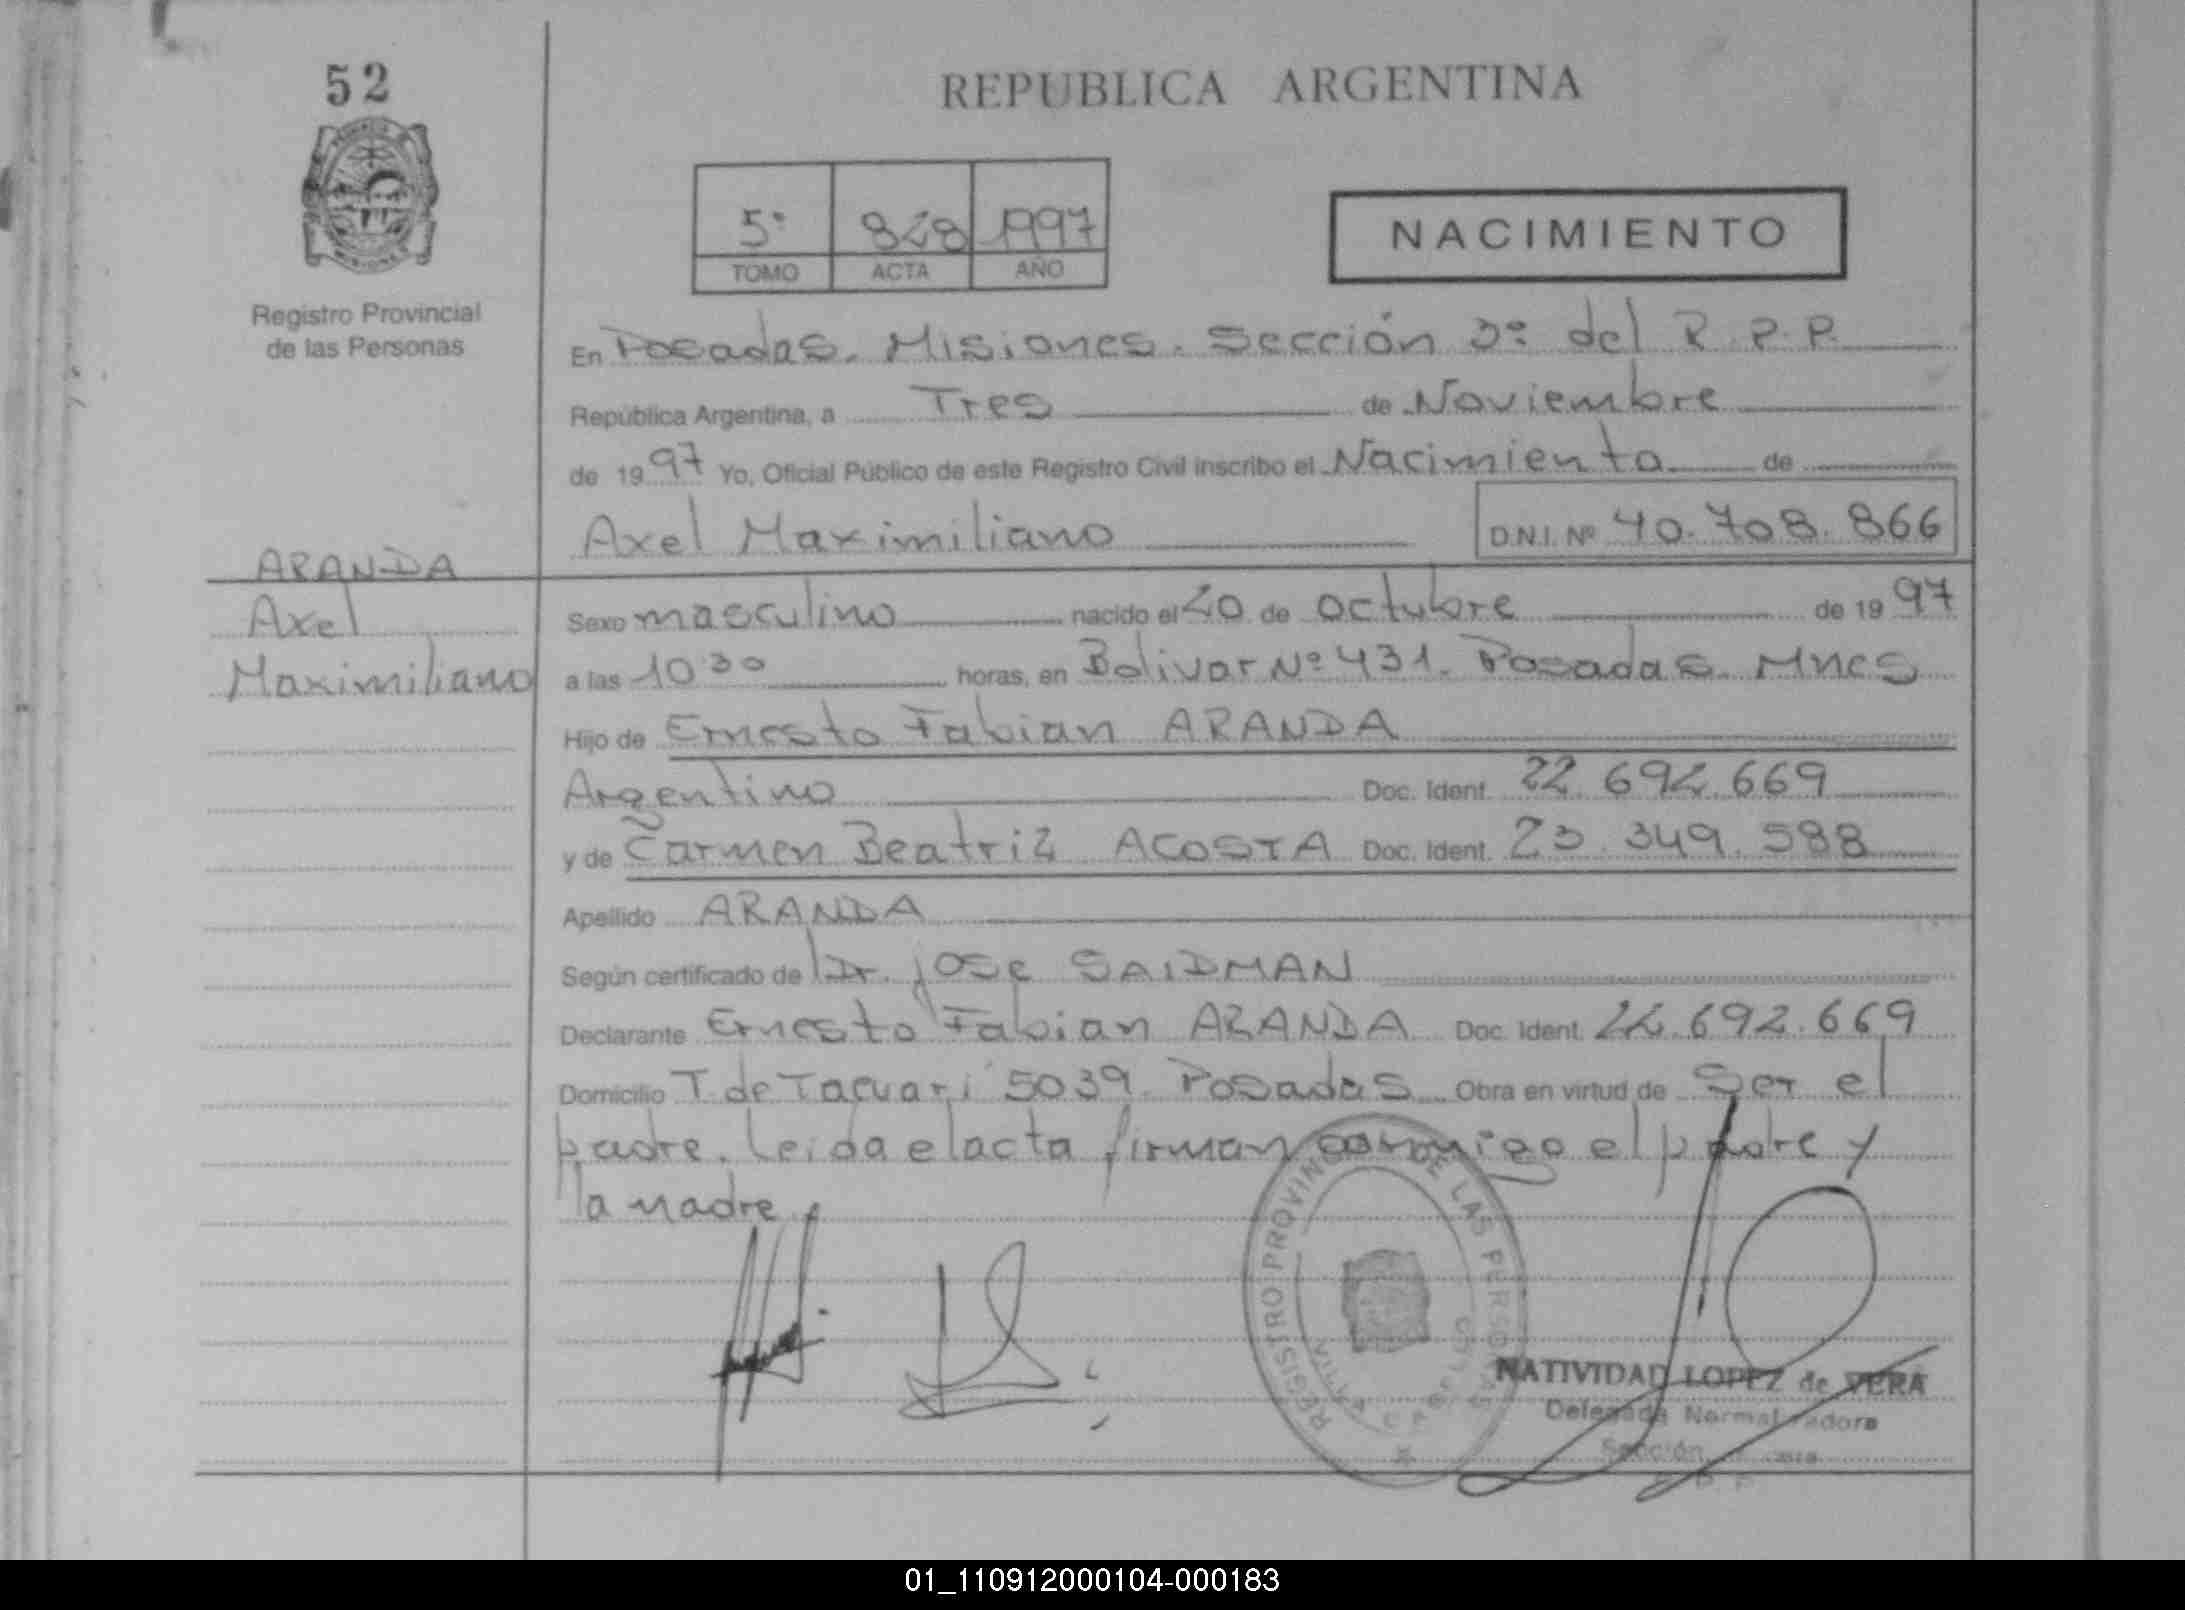 52
REPUBLICA ARGENTINA
5º 828 1997
TOMO ACTA AÑO
NACIMIENTO
Registro Provincial
de las Personas
En Posadas. Misiones. Sección 3º del R.P.P.
República Argentina, a Tres de Noviembre
de 1997 Yo, Oficial Público de este Registro Civil inscribo el Nacimiento de
Axel Maximiliano D.N.I. Nº 40.708.866
ARANDA
Axel
Maximiliano
Sexo masculino nacido el 20 de octubre de 1997
a las 10 30 horas, en Bolivar Nº 431. Posadas. Mnes
Hijo de Ernesto Fabian ARANDA
Argentino Doc. Ident. 22.692.669
y de Carmen Beatriz ACOSTA Doc. Ident. 23.349.588
Apellido ARANDA
Según certificado de Dr. jOSe SAIDMAN
Declarante Ernesto Fabian ARANDA Doc. Ident. 22.692.669
Domicilio T. de Tacuari 5039. Posadas Obra en virtud de Ser el
padre. Leida el acta firman conmigo el padre y
la madre
REGISTRO PROVINCIAL DE LAS PERSONAS
NATIVIDAD LOPEZ de VERA
Delegada Normalizadora
Sección
01_110912000104-000183